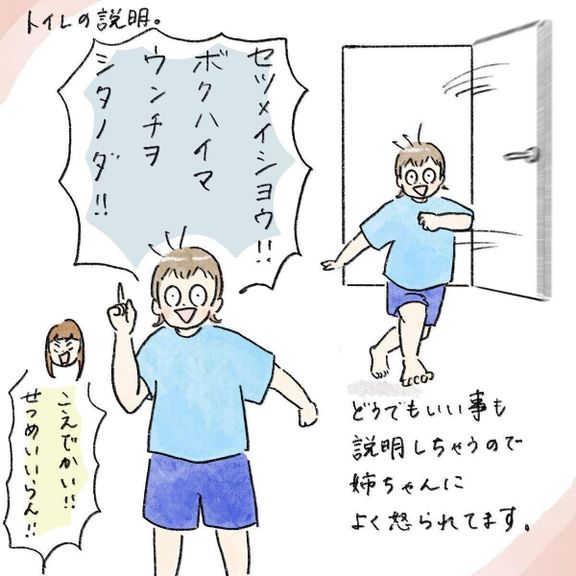 トイレの説明。
セツメイショウ!!
ボクハイマ
ウンチヲ
シタノダ!!
こえでかい!!
せつめいいらん!!
どうでもいい事も
説明しちゃうので
姉ちゃんに
よく怒られてます。